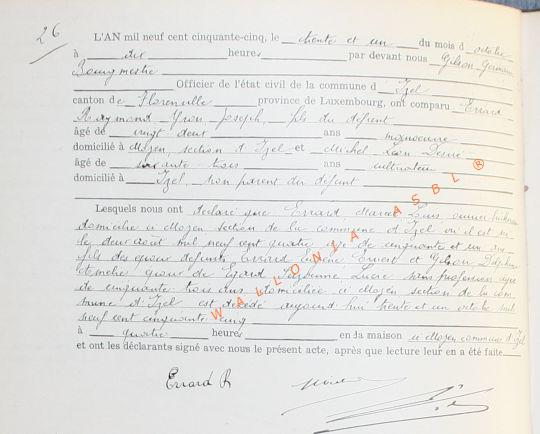 26
L'AN mil neuf cent cinquante-cinq, le trente et un du mois d'octobre
à dix heures par devant nous Gilson Germain
Bourgmestre
Officier de l'état civil de la commune d'Izel
canton de Florenville province de Luxembourg, ont comparu Errard
Raymond Yvon Joseph, fils du défunt
âgé de vingt deux ans manoeuvre
domicilié à Moyen, section d'Izel et Michel Léon Désiré
âgé de soixante-trois ans cultivateur
domicilié à Izel, non parent du défunt
Lesquels nous ont déclaré que Errard Marcel Louis ouvrier
domicilié à Moyen section de la commune d'Izel où il est né
le deux août mil neuf cent quatre âgé de cinquante et un ans
fils des époux défunts Errard Ernest et Gilson
époux de Lucie sans profession âgée
de cinquante trois ans domiciliée à Moyen section de la com-
mune d'Izel est décédé aujourd'hui trente et un octobre mil
neuf cent cinquante cinq
à quatre heures en la maison à Moyen commune d'Izel
et ont les déclarants signé avec nous le présent acte, après que lecture leur en a été faite
Errard R
WALLONIA ASBL ®